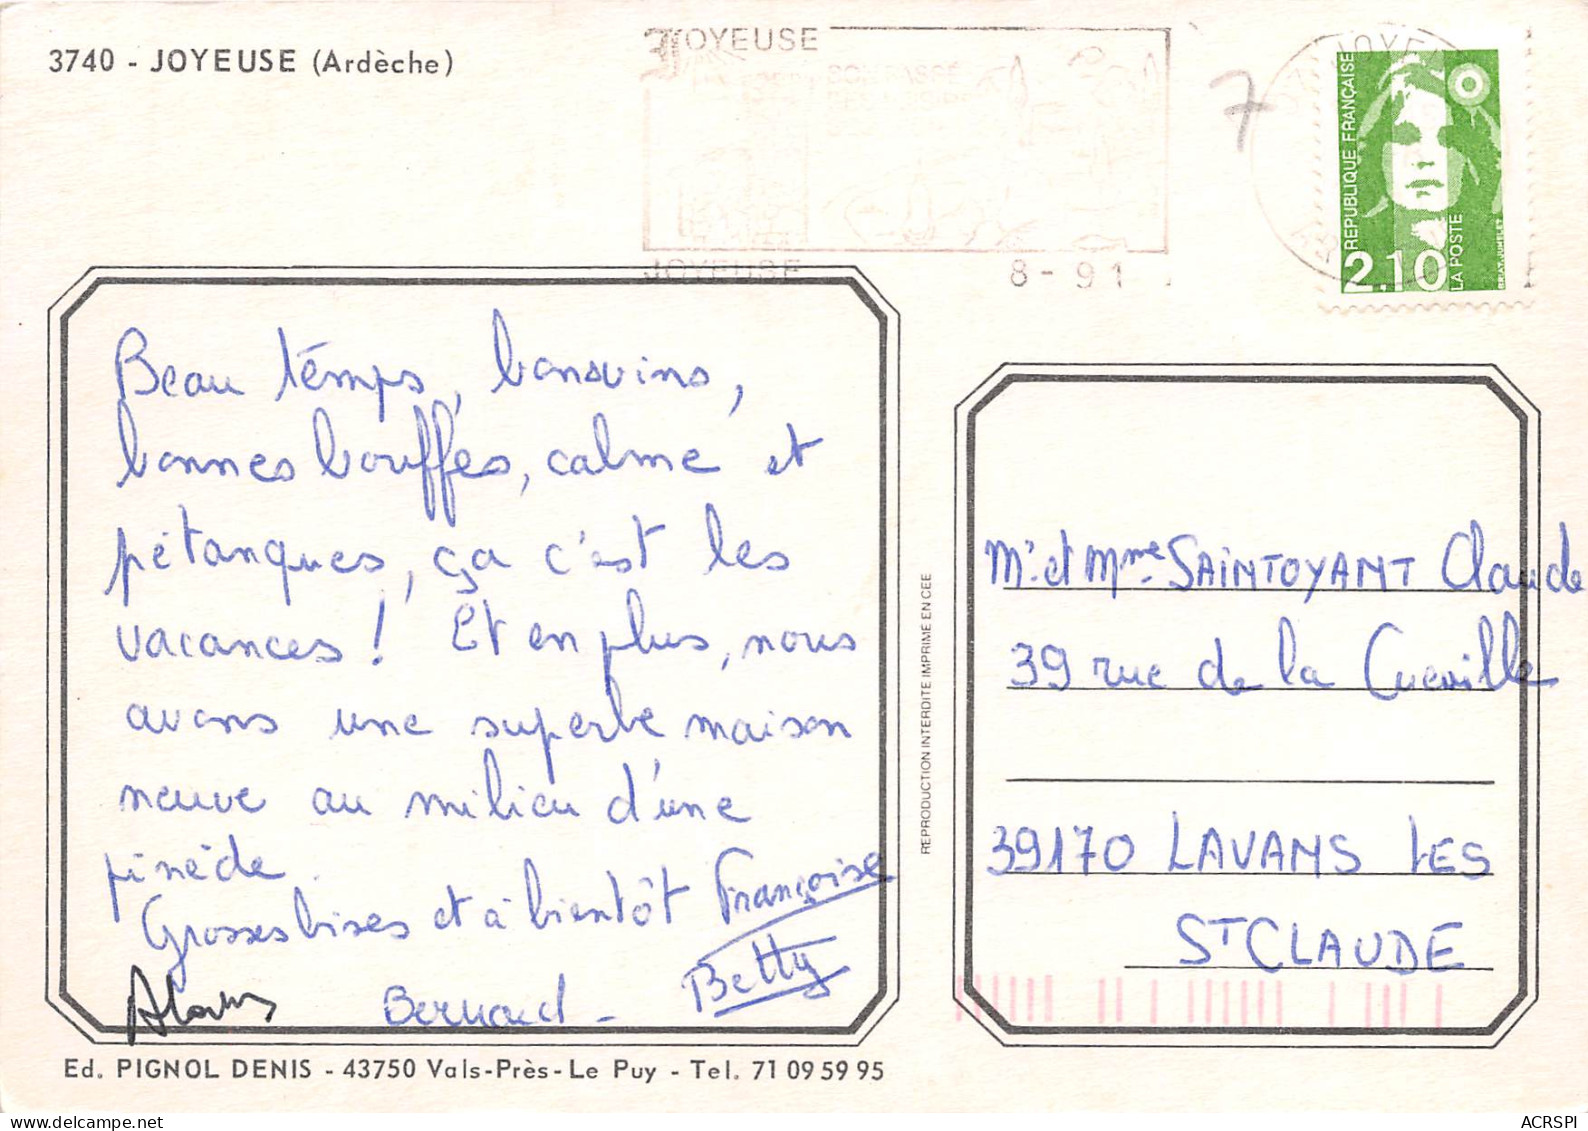 3740 - JOYEUSE (Ardèche)
JOYEUSE
SON PASSÉ
JOYEUSE
8 - 91
7
REPUBLIQUE FRANÇAISE
LA POSTE
2.10
Beau temps, bons vins,
bonnes bouffes, calme et
pétanques, ça c'est les
vacances ! Et en plus, nous
avons une superbe maison
neuve au milieu d'une
pinède.
Grosses bises et à bientôt Françoise
Betty
Bernard -
REPRODUCTION INTERDITE IMPRIME EN CEE
Mr et Mme SAINTOYANT Claude
39 rue de la Cueville
39170 LAVANS LES
ST CLAUDE
Ed. PIGNOL DENIS - 43750 Vals-Près-Le Puy - Tel. 71 09 59 95
www.delcampe.net
ACRSPI